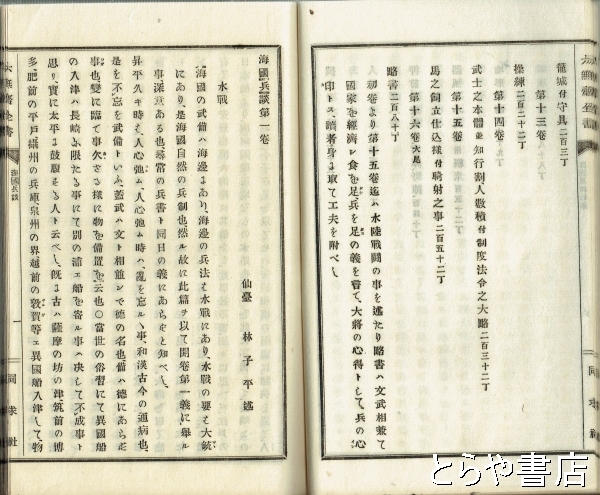 籠城付守具二百三丁
第十三卷
操練二百十二丁
第十四卷
武士之本體並知行割人數積付制度法令之大略二百三十二丁
第十五卷
馬之飼立仕込様付騎射之事二百五十二丁
第十六卷大尾
略書二百八十丁
初卷より第十五卷迄ハ水陸戰鬪の事を述たり略書ハ文武相兼て
國家を經濟し食を足兵を足の義を書て、大將の心得トして、兵の心
印トス、讀者身に取て工夫を附べし
六無齋全書
海國兵談第一卷
仙臺 林子平述
水戰
海國の武備ハ海邊にあり、海邊の兵法ハ水戰にあり、水戰の要ハ大銃
にあり、是海國自然の兵制也然ル故に此篇ヲ以て開卷第一義に擧ル
事、深意ある也、尋常の兵書ト同日の義にあらすと知べし
昇平久キ時ハ人心弛ム、人心弛ム時ハ、亂を忘ルヽ事、和漢古今の通病也、
是を不忘を武備トいふ、蓋武ハ文ト相雙ンで德の名也備ハ德にあらす
事也、變に臨て事欠さる様に物を備置を云也〇當世の俗習にて異國船
の入津ハ長崎に限たる事にて別の浦江船を寄ル事ハ決して不成事ト
思り、實に太平に鼓腹する人ト云べし、既に古ハ薩摩の坊の津筑前の博
多、肥前の平戸攝州の兵庫泉州の界越前の敦賀等江異國船入津して物
六無齋全書
海國兵談
一
同求社
とらや書店